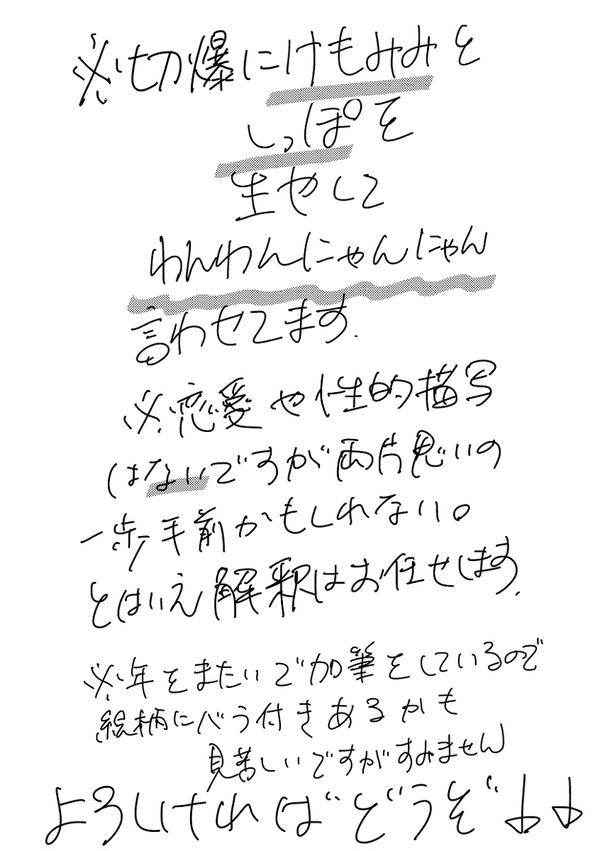 ※切爆にけもみみと
しっぽを
生やして
わんわんにゃんにゃん
言わせてます.
※恋愛や性的描写
はないですが両片思いの
一歩手前かもしれない。
とはいえ解釈はお任せします.
※年をまたいで加筆をしているので
絵柄にバラ付きあるかも
見苦しいですがすみません
よろしければどうぞ↓↓